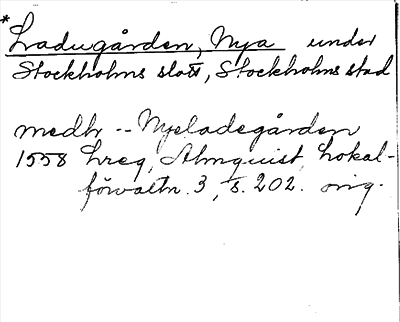 * Ladugården, Nya under
Stockholms slott, Stockholms stad
medh -- Nyeladegården
1558 Lreg, Almquist, Lokal-
förvaltn. 3, s. 202. orig.